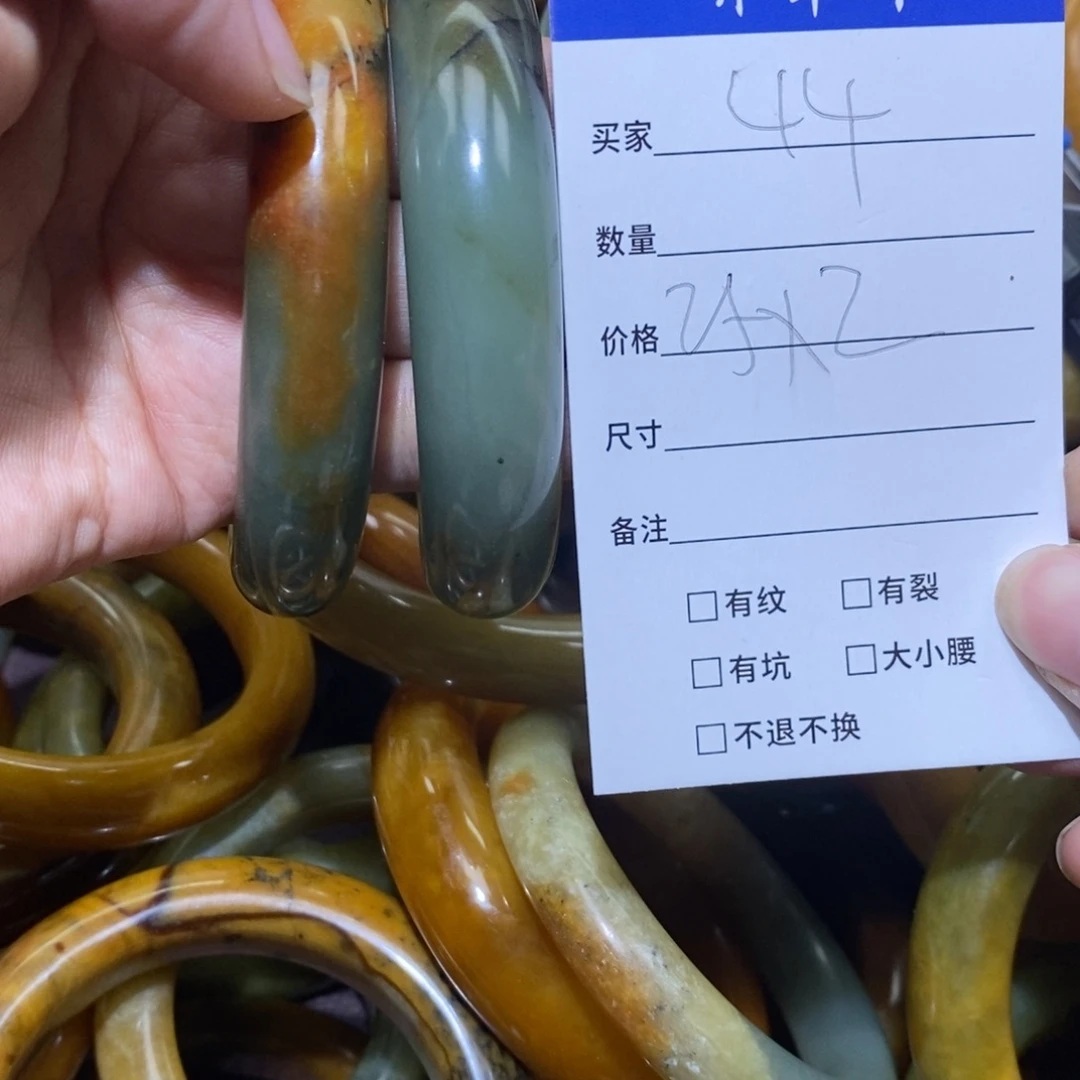 买家 44
数量
价格 25x2
尺寸
备注
□有纹 □有裂
□有坑 □大小腰
□不退不换